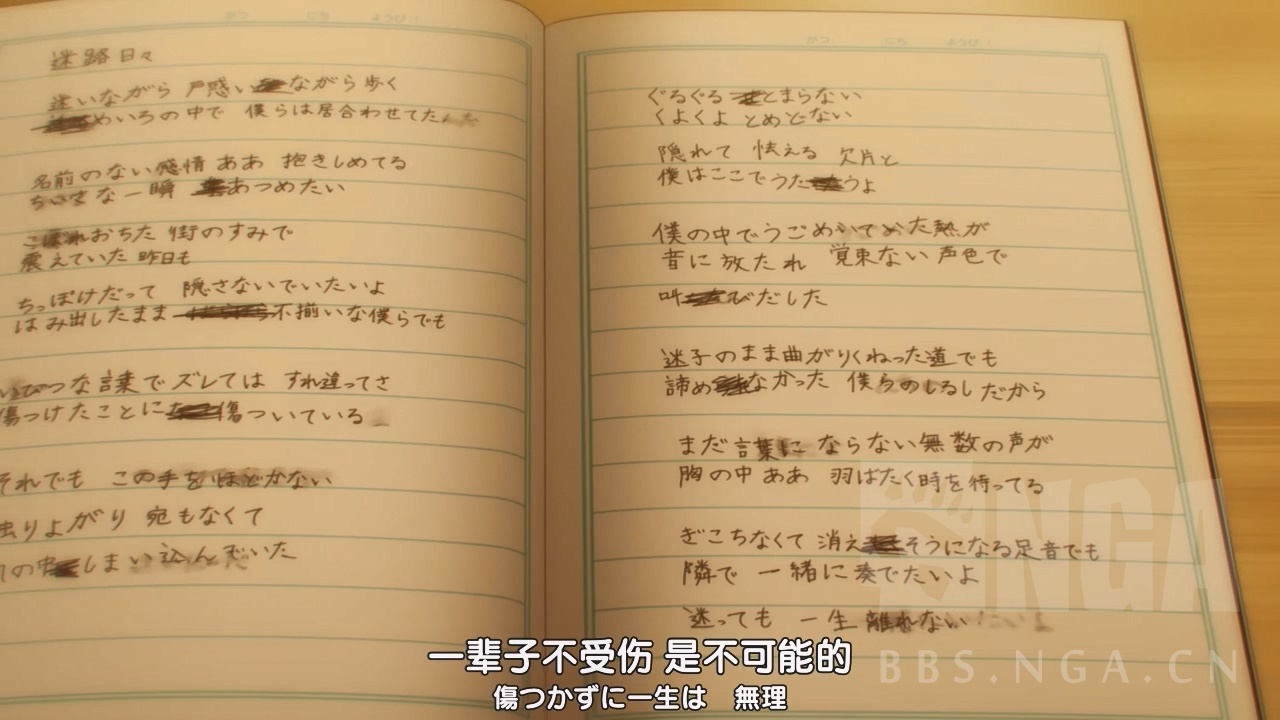 迷路日々
迷いながら 戸惑いながら歩く
めいろの中で 僕らは居合わせてたんだ
名前のない感情 ああ 抱きしめてる
ちいさな一瞬 あつめたい
こぼれおちた 街のすみで
震えていた 昨日も
ちっぽけだって 隠さないでいたいよ
はみ出したまま 不揃いな僕らでも
いびつな言葉でズレては すれ違ってさ
傷つけたことに傷ついている
それでも この手をほどかない
よがり 宛もなくて
の中しまい込んでいた
ぐるぐる とまらない
くよくよ とめどない
隠れて 怯える 欠片と
僕はここでうたうよ
僕の中でうごめいてった熱が
音に 放たれ 覚束ない声色で
叫びだした
迷子のまま曲がりくねった道でも
諦めなかった 僕らのしるしだから
まだ言葉に ならない無数の声が
胸の中 ああ 羽ばたく時を待ってる
ぎこちなくて 消えそうになる足音でも
隣で 一緒に奏でたいよ
迷っても 一生 離れない
NGA
BBS.NGA.CN
一辈子不受伤 是不可能的
傷つかずに一生は 無理